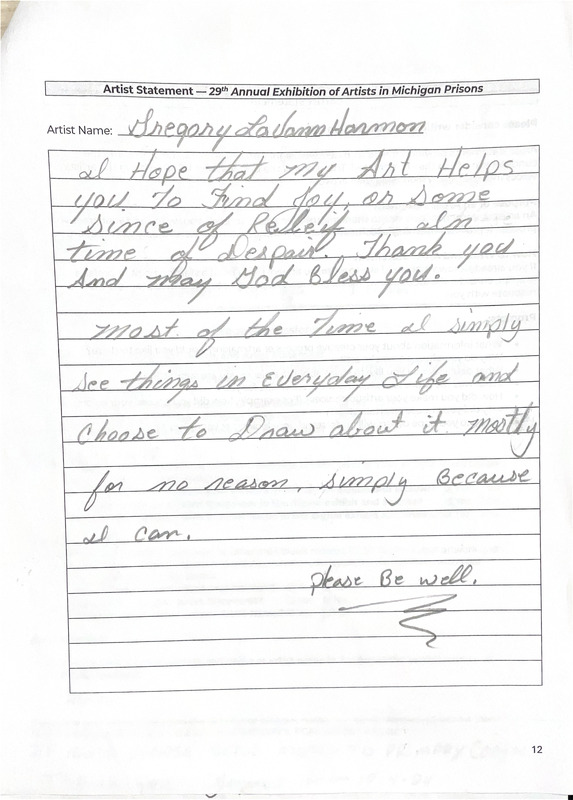 Artist Statement — 29th Annual Exhibition of Artists in Michigan Prisons
Artist Name: Gregory LaVann Harmon
I Hope that my Art Helps
you To Find Joy, or Some
Since of Releif In
time of Despair. Thank you
And may God Bless you.
most of the Time I simply
see things in Everyday Life and
Choose to Draw about it. mostly
for no reason, simply Because
I can.
please Be well.
12